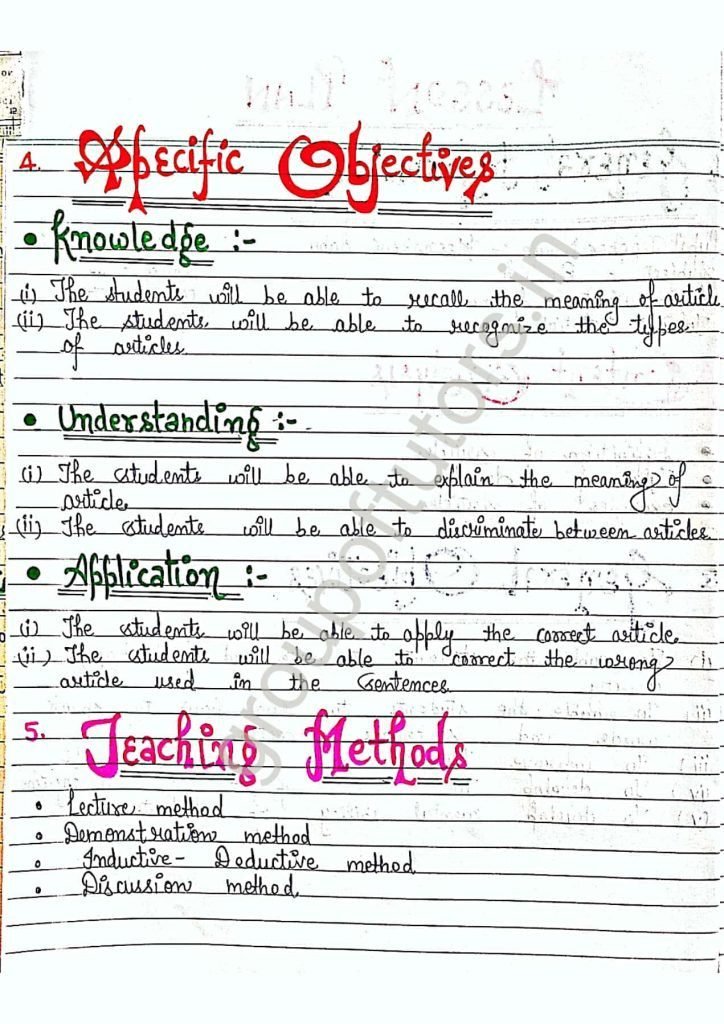 4. Specific Objectives
• Knowledge :-
(i) The students will be able to recall the meaning of article
(ii) The students will be able to recognize the types
of articles.
• Understanding :-
(i) The students will be able to explain the meaning of
article
(ii) The students will be able to discriminate between articles
• Application :-
(i) The students will be able to apply the correct article
(ii) The students will be able to correct the wrong
article used in the sentences.
5. Teaching Methods
• Lecture method
• Demonstration method
• Inductive- Deductive method
• Discussion method
groupoftutors.in